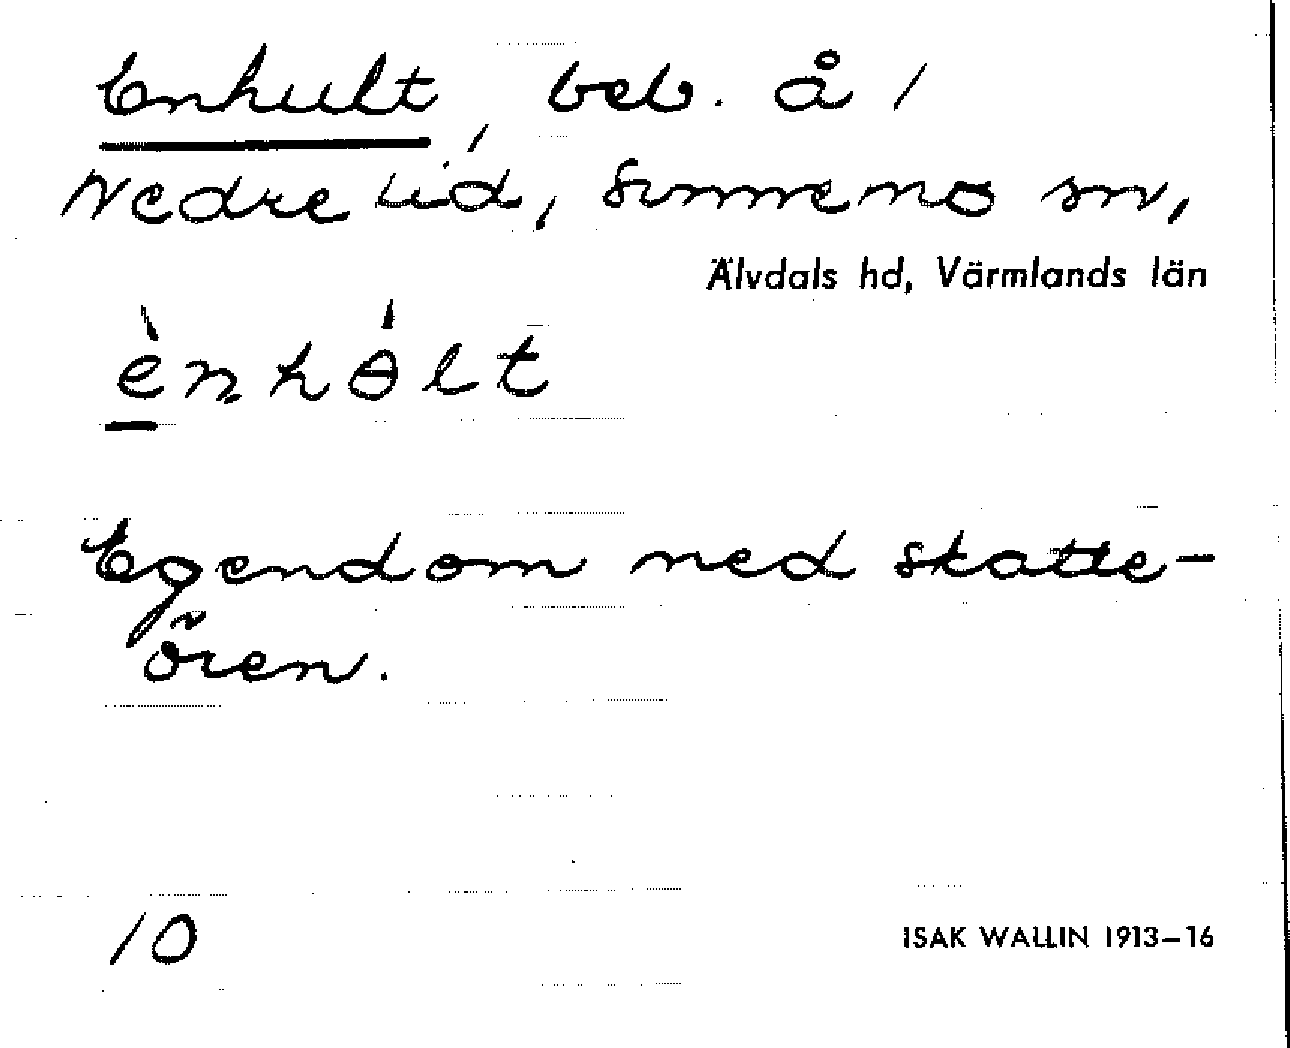 Enhult, beb. å 1
Nedre Lid, Sunnemo sn,
Älvdals hd, Värmlands län
ènhɵ́lt
Egendom med skatte-
ören.
10
ISAK WALLIN 1913–16